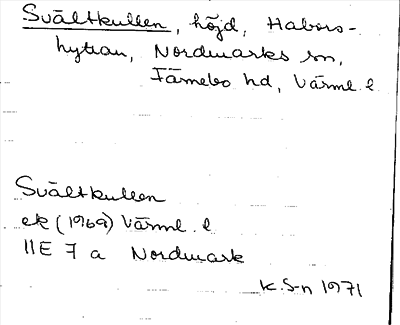 Svältkullen, höjd, Habors-
hyttan, Nordmarks sn,
Färnebo hd, Värml. l.
Svältkullen
ek (1969) Värml. l
11E 7 a Nordmark
K. S-n 1971